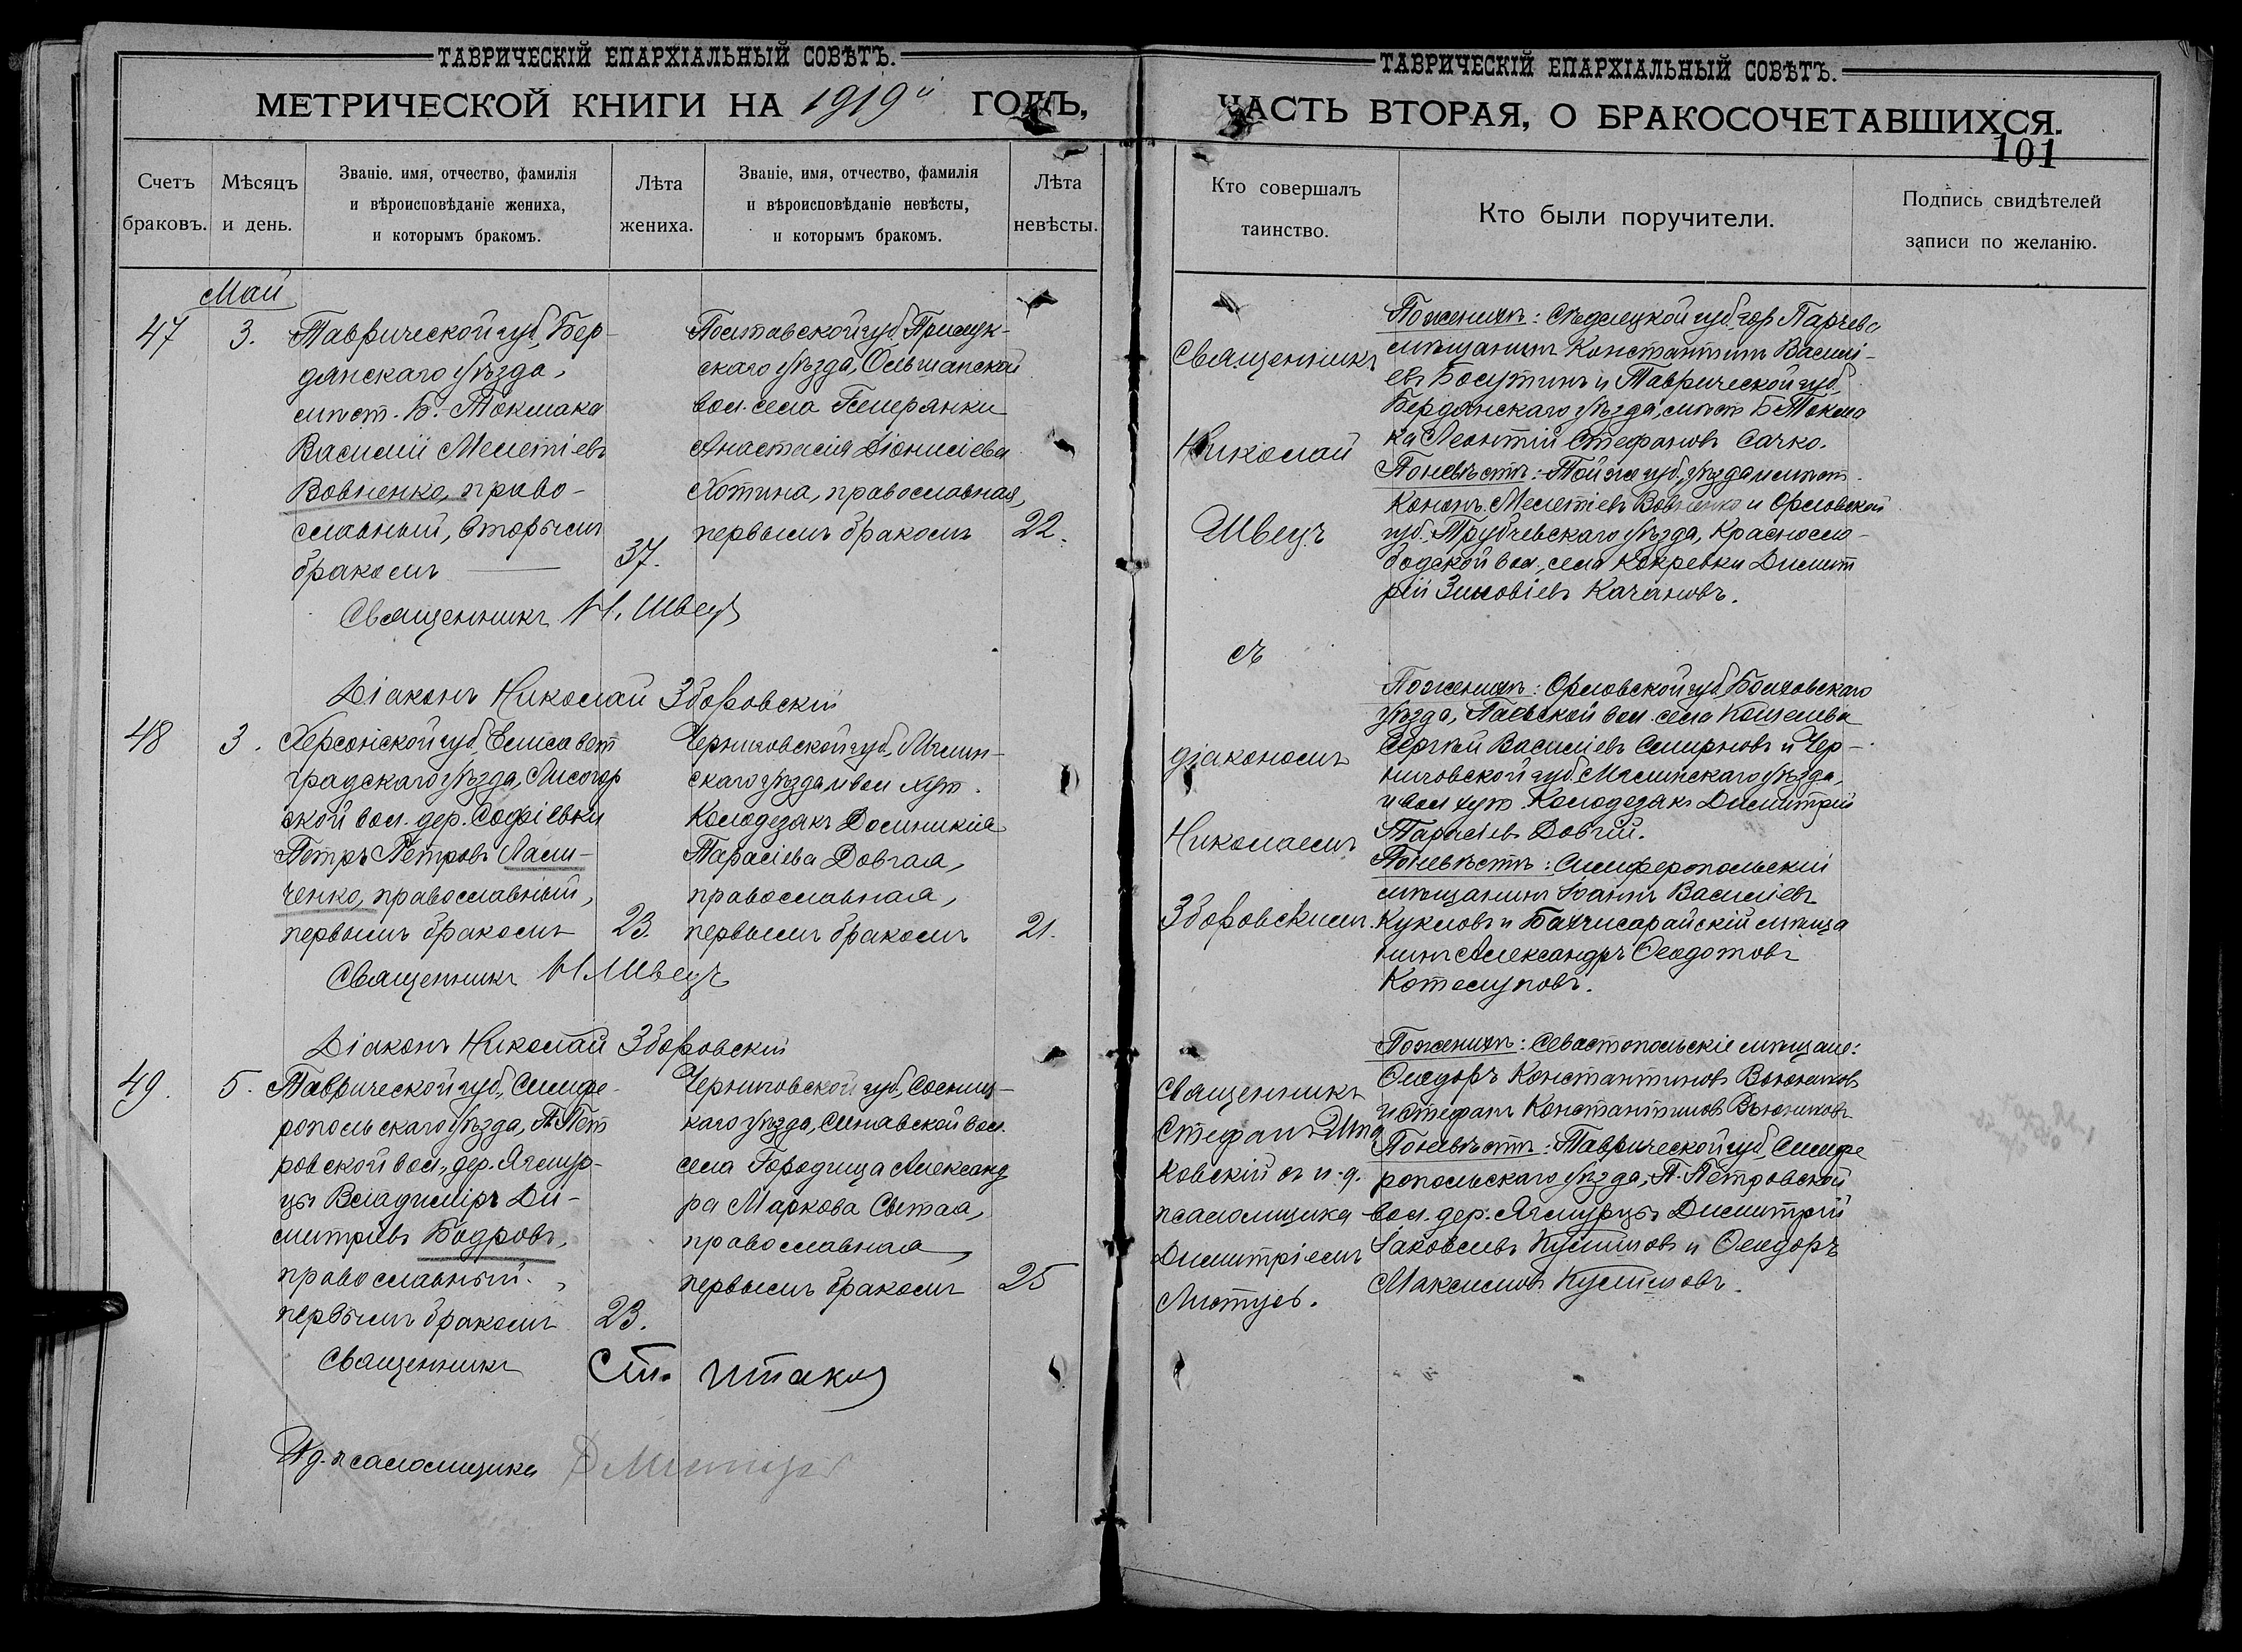 ТАВРИЧЕСКІЙ ЕПАРХІАЛЬНЫЙ СОВѢТЪ.
МЕТРИЧЕСКОЙ КНИГИ НА 1919й ГОДЪ,
Счетъ браковъ.
Мѣсяцъ и день.
Званіе. имя, отчество, фамилія
и вѣроисповѣданіе жениха,
и которымъ бракомъ.
Лѣта жениха.
Званіе, имя, отчество, фамилія
и вѣроисповѣданіе невѣсты,
и которымъ бракомъ.
Лѣта невѣсты.
Май
47
3.
Таврической губ., Бер-
дянскаго уѣзда,
мѣст. Б. Токмака
Василій Мелетіевъ
Вовненко, право-
славный, вторымъ
бракомъ
37.
Полтавской губ., Прилук-
скаго уѣзда, Ольшанской
вол. села Гмерянки
Анастасія Діонисіева
Хотина, православная,
первымъ бракомъ
22.
Священникъ Н. Швецъ
Діаконъ Николай Зборовскій
48
3.
Херсонской губ., Елисавет
градскаго уѣзда, Лисогор
ской вол. дер. Софіевки
Петръ Петровъ Ласи-
ченко, православный,
первымъ бракомъ
23.
Черниговской губ., Мглин-
скаго уѣзда и вол хут.
Колодезакъ Домникія
Тарасіева Довгая,
православная,
первымъ бракомъ
21.
Священникъ Н. Швецъ
Діаконъ Николай Зборовскій
49.
5.
Таврической губ., Симфе-
ропольскаго уѣзда, П. Пет
ровской вол., дер. Ягмур-
цы Владиміръ Ди-
митріевъ Бодровъ,
православный,
первымъ бракомъ
23.
Черниговской губ., Сосниц-
каго уѣзда, Синявской вол.
села Городища Александ
ра Маркова Сытая,
православная,
первымъ бракомъ
25
Священникъ Ст. Шпак
И д. псаломщика Д Листцов
ТАВРИЧЕСКІЙ ЕПАРХІАЛЬНЫЙ СОВѢТЪ.
ЧАСТЬ ВТОРАЯ, О БРАКОСОЧЕТАВШИХСЯ.
101
Кто совершалъ таинство.
Кто были поручители.
Подпись свидѣтелей
записи по желанію.
Священникъ
Николай
Швецъ
съ
діакономъ
Николаемъ
Зборовскимъ.
По женихѣ: Сѣдлецкой губ., гор Парчева
мѣщанинъ Константинъ Василі-
евъ Босутинъ и Таврической губ.
Бердянскаго уѣзда, мѣст Б Токма
ка Леонтій Стефановъ Сачко.
По невѣстѣ: Той же губ., уѣзда и мѣст.
Кононъ Мелетіевъ Вовненко и Орловской
губ. Трубчевскаго уѣзда, Краснсло-
бодской вол., села Кокревки Димит
рій Зиновіевъ Качановъ.
По женихѣ: Орловской губ, Болховскаго
уѣзда, Паевской вол. села Кошелева
Сергѣй Василіевъ Смирновъ и Чер-
ниговской губ. Мглинскаго уѣзда,
и вол хут. Колодезакъ Димитрій
Тарасіевъ Довгій.
По невѣстѣ: Симферопольскій
мѣщанинъ Іоаннъ Василіевъ
Кукловъ и Бахчисарайскій мѣща
нинъ Александръ Ѳеодотовъ
Котелуповъ.
Священникъ
Стефанъ Шпа
ковскій съ и. д.
псаломщика
Димитріемъ
Листцов.
По женихѣ: Севастопольскіе мѣщане:
Ѳеодоръ Константиновъ Вьюниковъ
и Стефанъ Константиновъ Вьюниковъ
По невѣстѣ: Таврической губ, Симфе
ропольскаго уѣзда, П. Петровской
вол. дер. Ягмурцы Димитрій
Іаковлевъ Кулишовъ и Ѳеодоръ
Максимовъ Кулишовъ.